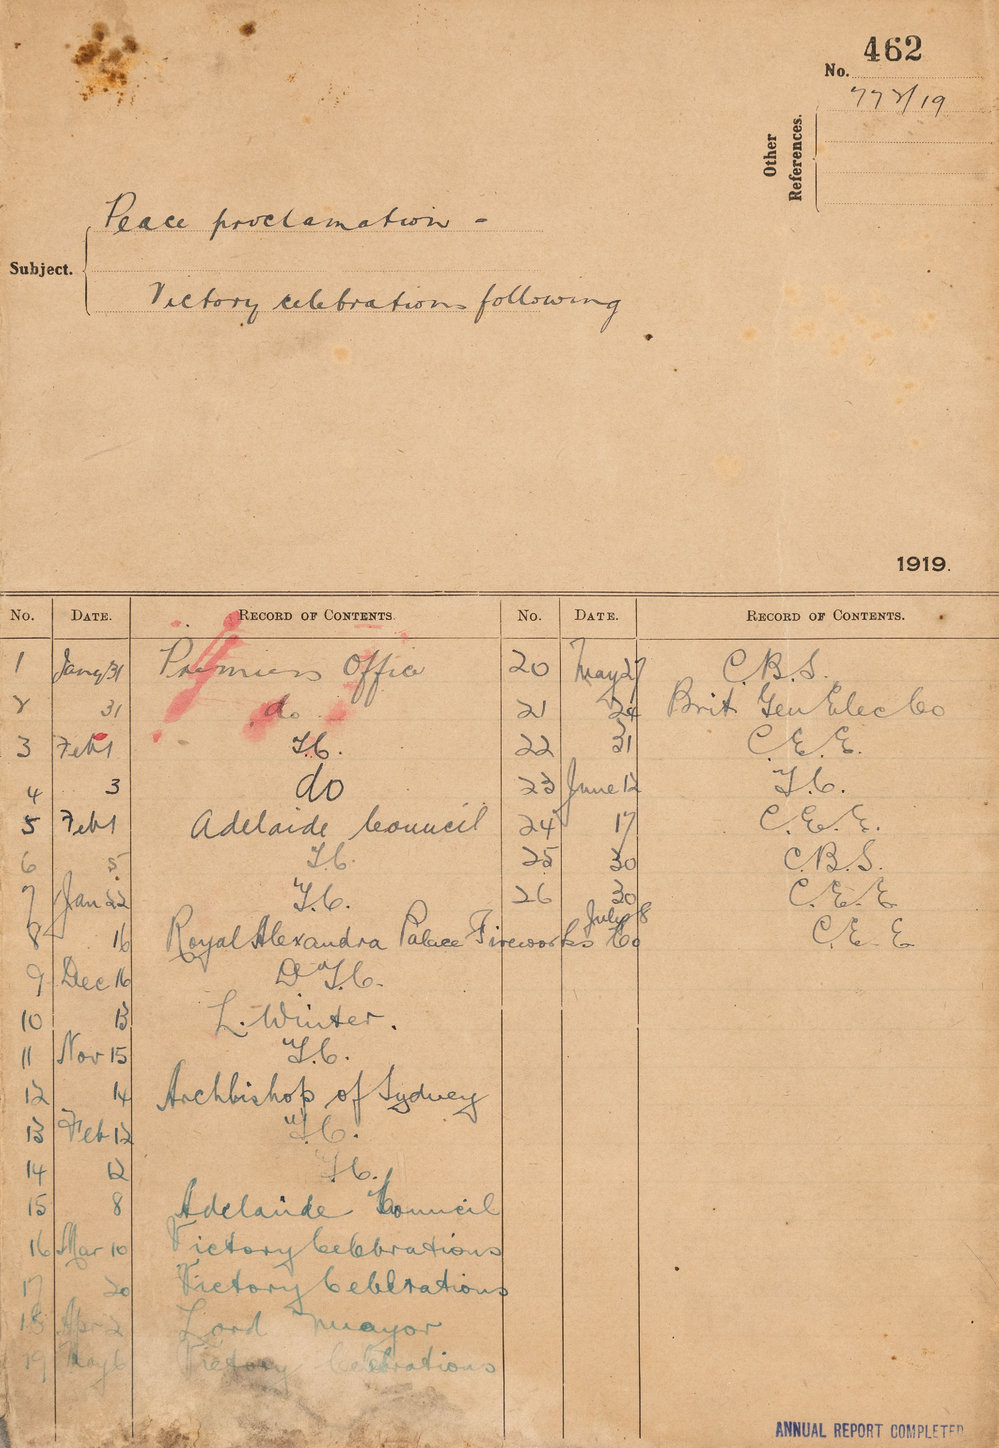 No. 462
772/19
Other References.
Subject.
Peace proclamation -
Victory celebrations following
1919.
No. DATE. RECORD OF CONTENTS.
1 Jany 31 Premiers Office
2 31 do
3 Feb 1 T.C.
4 3 do
5 Feb 1 Adelaide Council
6 5 T.C.
7 Jan 22 T.C.
8 16 Royal Alexandra Palace Fireworks Co
9 Dec 16 D T.C.
10 13 L. Winter.
11 Nov 15 T.C.
12 14 Archbishop of Sydney
13 Feb 12 T.C.
14 12 T.C.
15 8 Adelaide Council
16 Mar 10 Victory Celebrations
17 20 Victory Celebrations
18 Apr 2 Lord Mayor
19 May 6 Victory Celebrations
No. DATE. RECORD OF CONTENTS.
20 May 27 C.B.S.
21 Brit. Gen Elec Co
22 31 C.E.E.
23 June 12 T.C.
24 17 C.E.E.
25 30 C.B.S.
26 30 C.E.E
July 8 C.E.E
ANNUAL REPORT COMPLETED